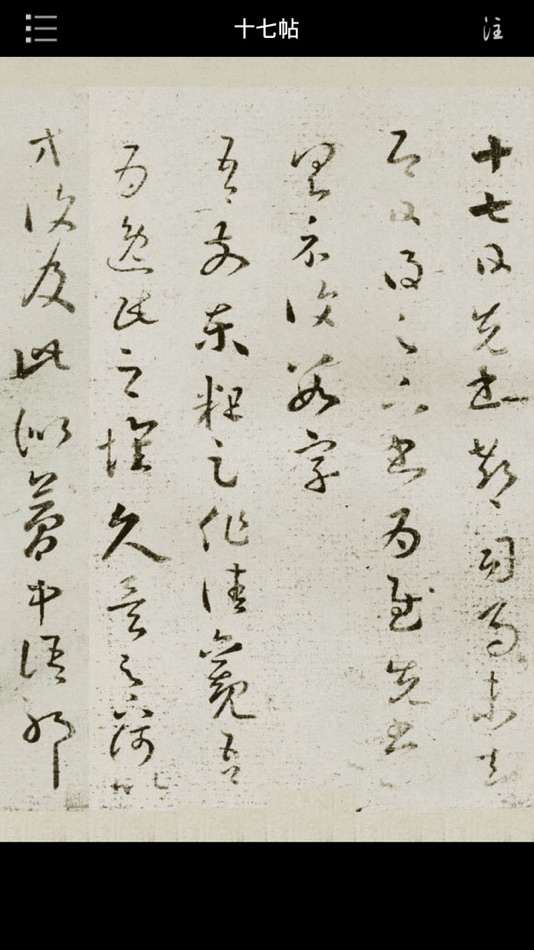 十七帖
注
十七日先書郗司馬未去
即日得足下書為慰先書
以具示復數字
吾前東粗足作佳觀吾
為逸民之懷久矣足下何以
方復及此似夢中語耶